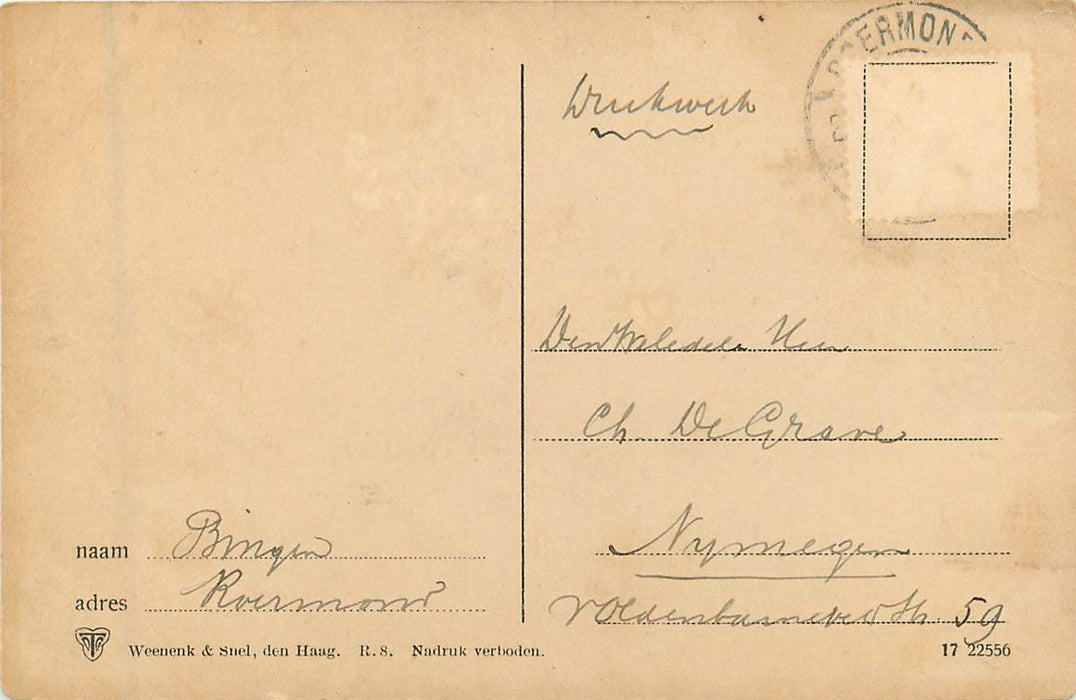 ROERMOND
Drukwerk
Den WelEdele Heer
Ch. De Grave
Nymegen
v Oldenbarneveldstr. 59
naam Bingen
adres Roermond
Weenenk & Snel, den Haag. R. S. Nadruk verboden.
17 22556